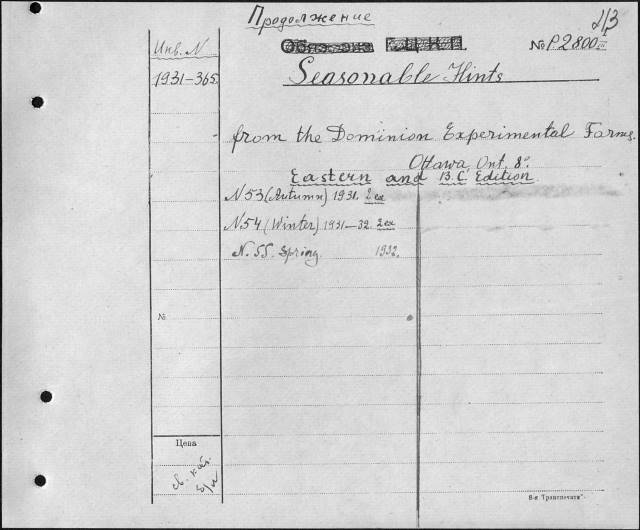 Продолжение
№ P2800
Инв. N
1931-365
Seasonable Hints
from the Dominion Experimental Farms.
Ottawa, Ont. 8°.
Eastern and B.C. Edition
N 53 (Autumn) 1931. 2 ex
N. 54 (Winter) 1931-32. 2 ex
N. 55. Spring. 1932.
№
Цена
св. кат.
8-я Транспечать